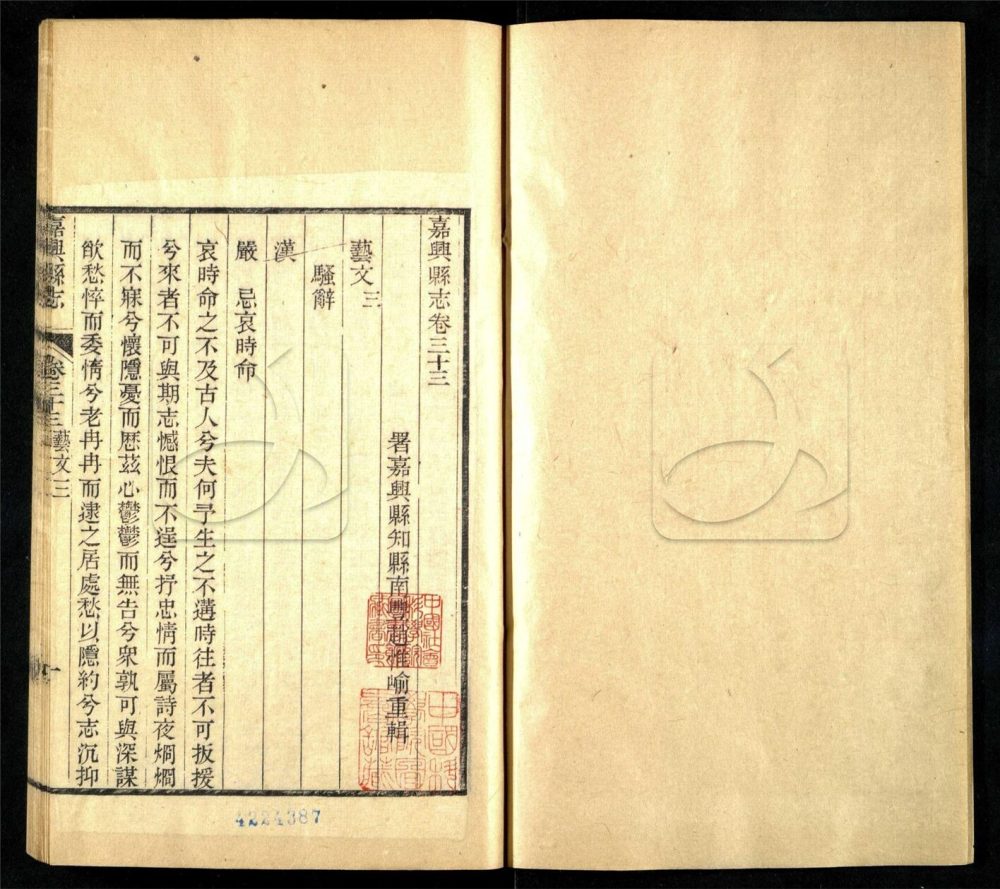 嘉興縣志卷三十三
署嘉興縣知縣南豐趙惟崳重輯
藝文三
騷辭
漢
嚴　忌哀時命
哀時命之不及古人兮夫何予生之不遘時往者不可扳援
兮來者不可與期志憾恨而不逞兮抒忠情而屬詩夜烱烱
而不寐兮懷隱憂而厯茲心鬱鬱而無告兮衆孰可與深謀
欿愁悴而委惰兮老冉冉而逮之居處愁以隱約兮志沉抑
嘉興縣志
卷三十三
藝文三
一
4224387